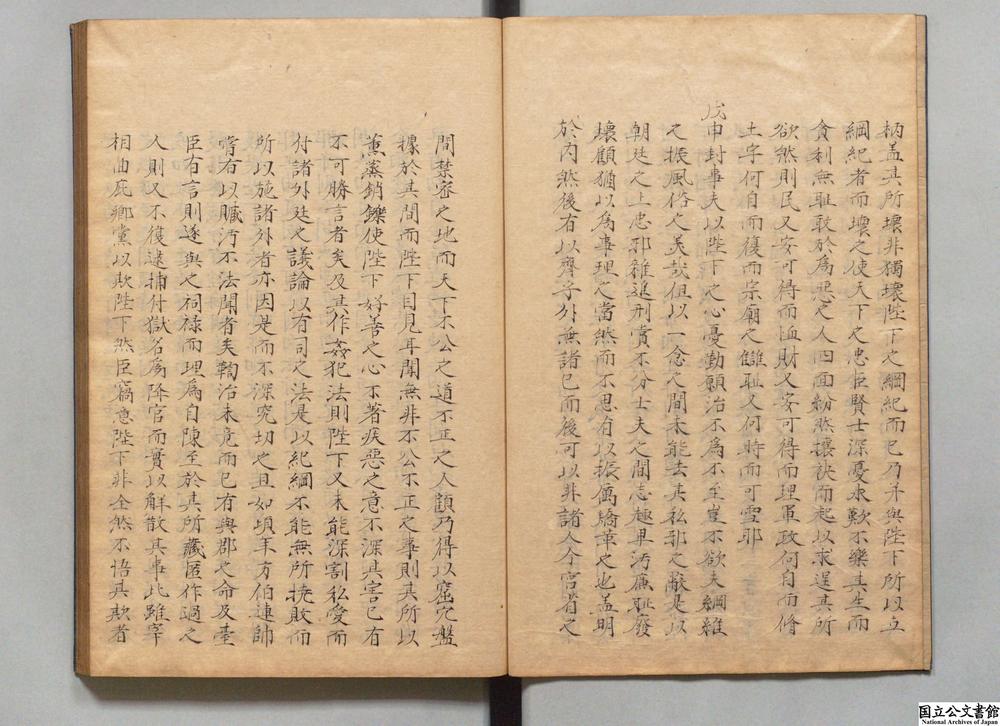 柄盖其所壞非獨壞陛下之綱紀而已乃并與陛下所以立
綱紀者而壞之使天下之忠臣賢士深憂永歎不樂其生而
貪利無耻敢於為惡之人四面紛然攘袂而起以求逞其所
欲然則民又安可得而恤財又安可得而理軍政何自而脩
土宇何自而復而宗廟之讎耻又何時而可雪耶
戊申封事夫以陛下之心憂勤願治不為不至豈不欲夫綱維
之振風俗之美哉但以一念之間未能去其私邪之蔽是以
朝廷之上忠邪雜進刑賞不分士夫之間志趣卑汚廉耻廢
壞顧猶以為事理之當然而不思有以振厲矯革之也盖明
於内然後有以齊乎外無諸已而後可以非諸人今宮省之
間禁密之地而天下不公之道不正之人顧乃得以窟穴盤
據於其間而陛下目見耳聞無非不公不正之事則其所以
薰蒸銷鑠使陛下好善之心不著疾惡之意不深其害已有
不可勝言者矣及其作姦犯法則陛下又未能深割私愛而
付諸外廷之議論以有司之法是以紀綱不能無所撓敗而
所以施諸外者亦因是而不深究切之且如頃年方伯連帥
嘗有以贓汚不法聞者矣鞫治未竟而已有與郡之命及臺
臣有言則遂與之祠禄而理為自陳至於其所藏匿作過之
人則又不復逮捕付獄名為降官而實以解散其事此雖宰
相曲庇鄉黨以欺陛下然臣竊意陛下非全然不悟其欺者
国立公文書館
National Archives of Japan